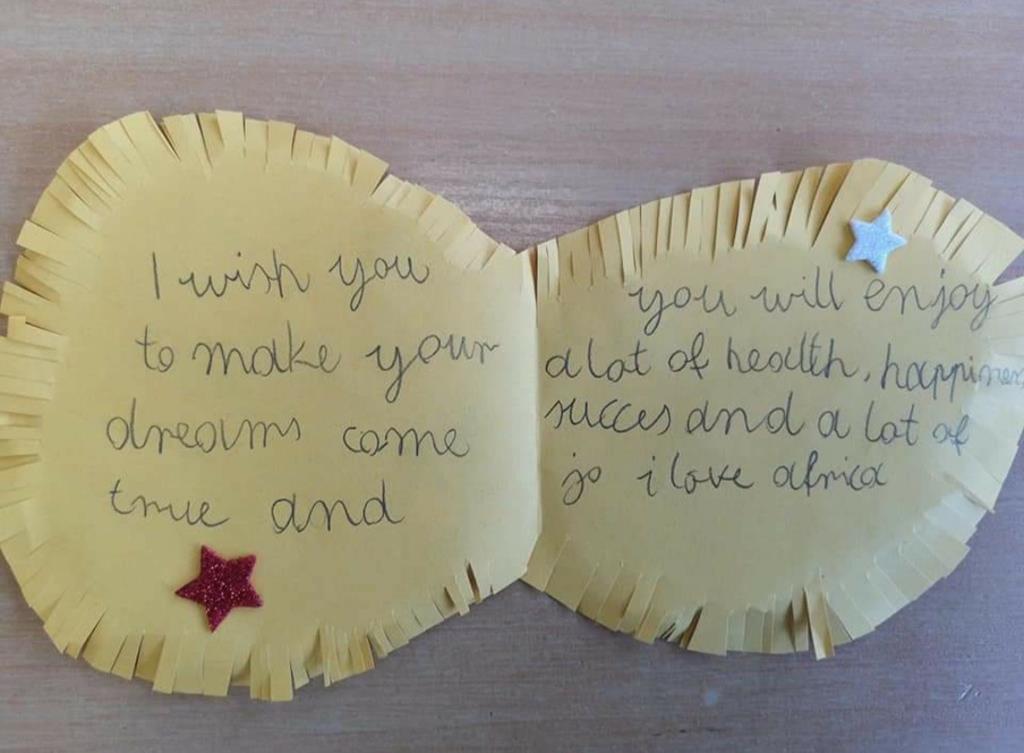 I wish you
to make your
dreams come
true and
you will enjoy
a lot of health, happines
succes and a lot of
jo i love africa